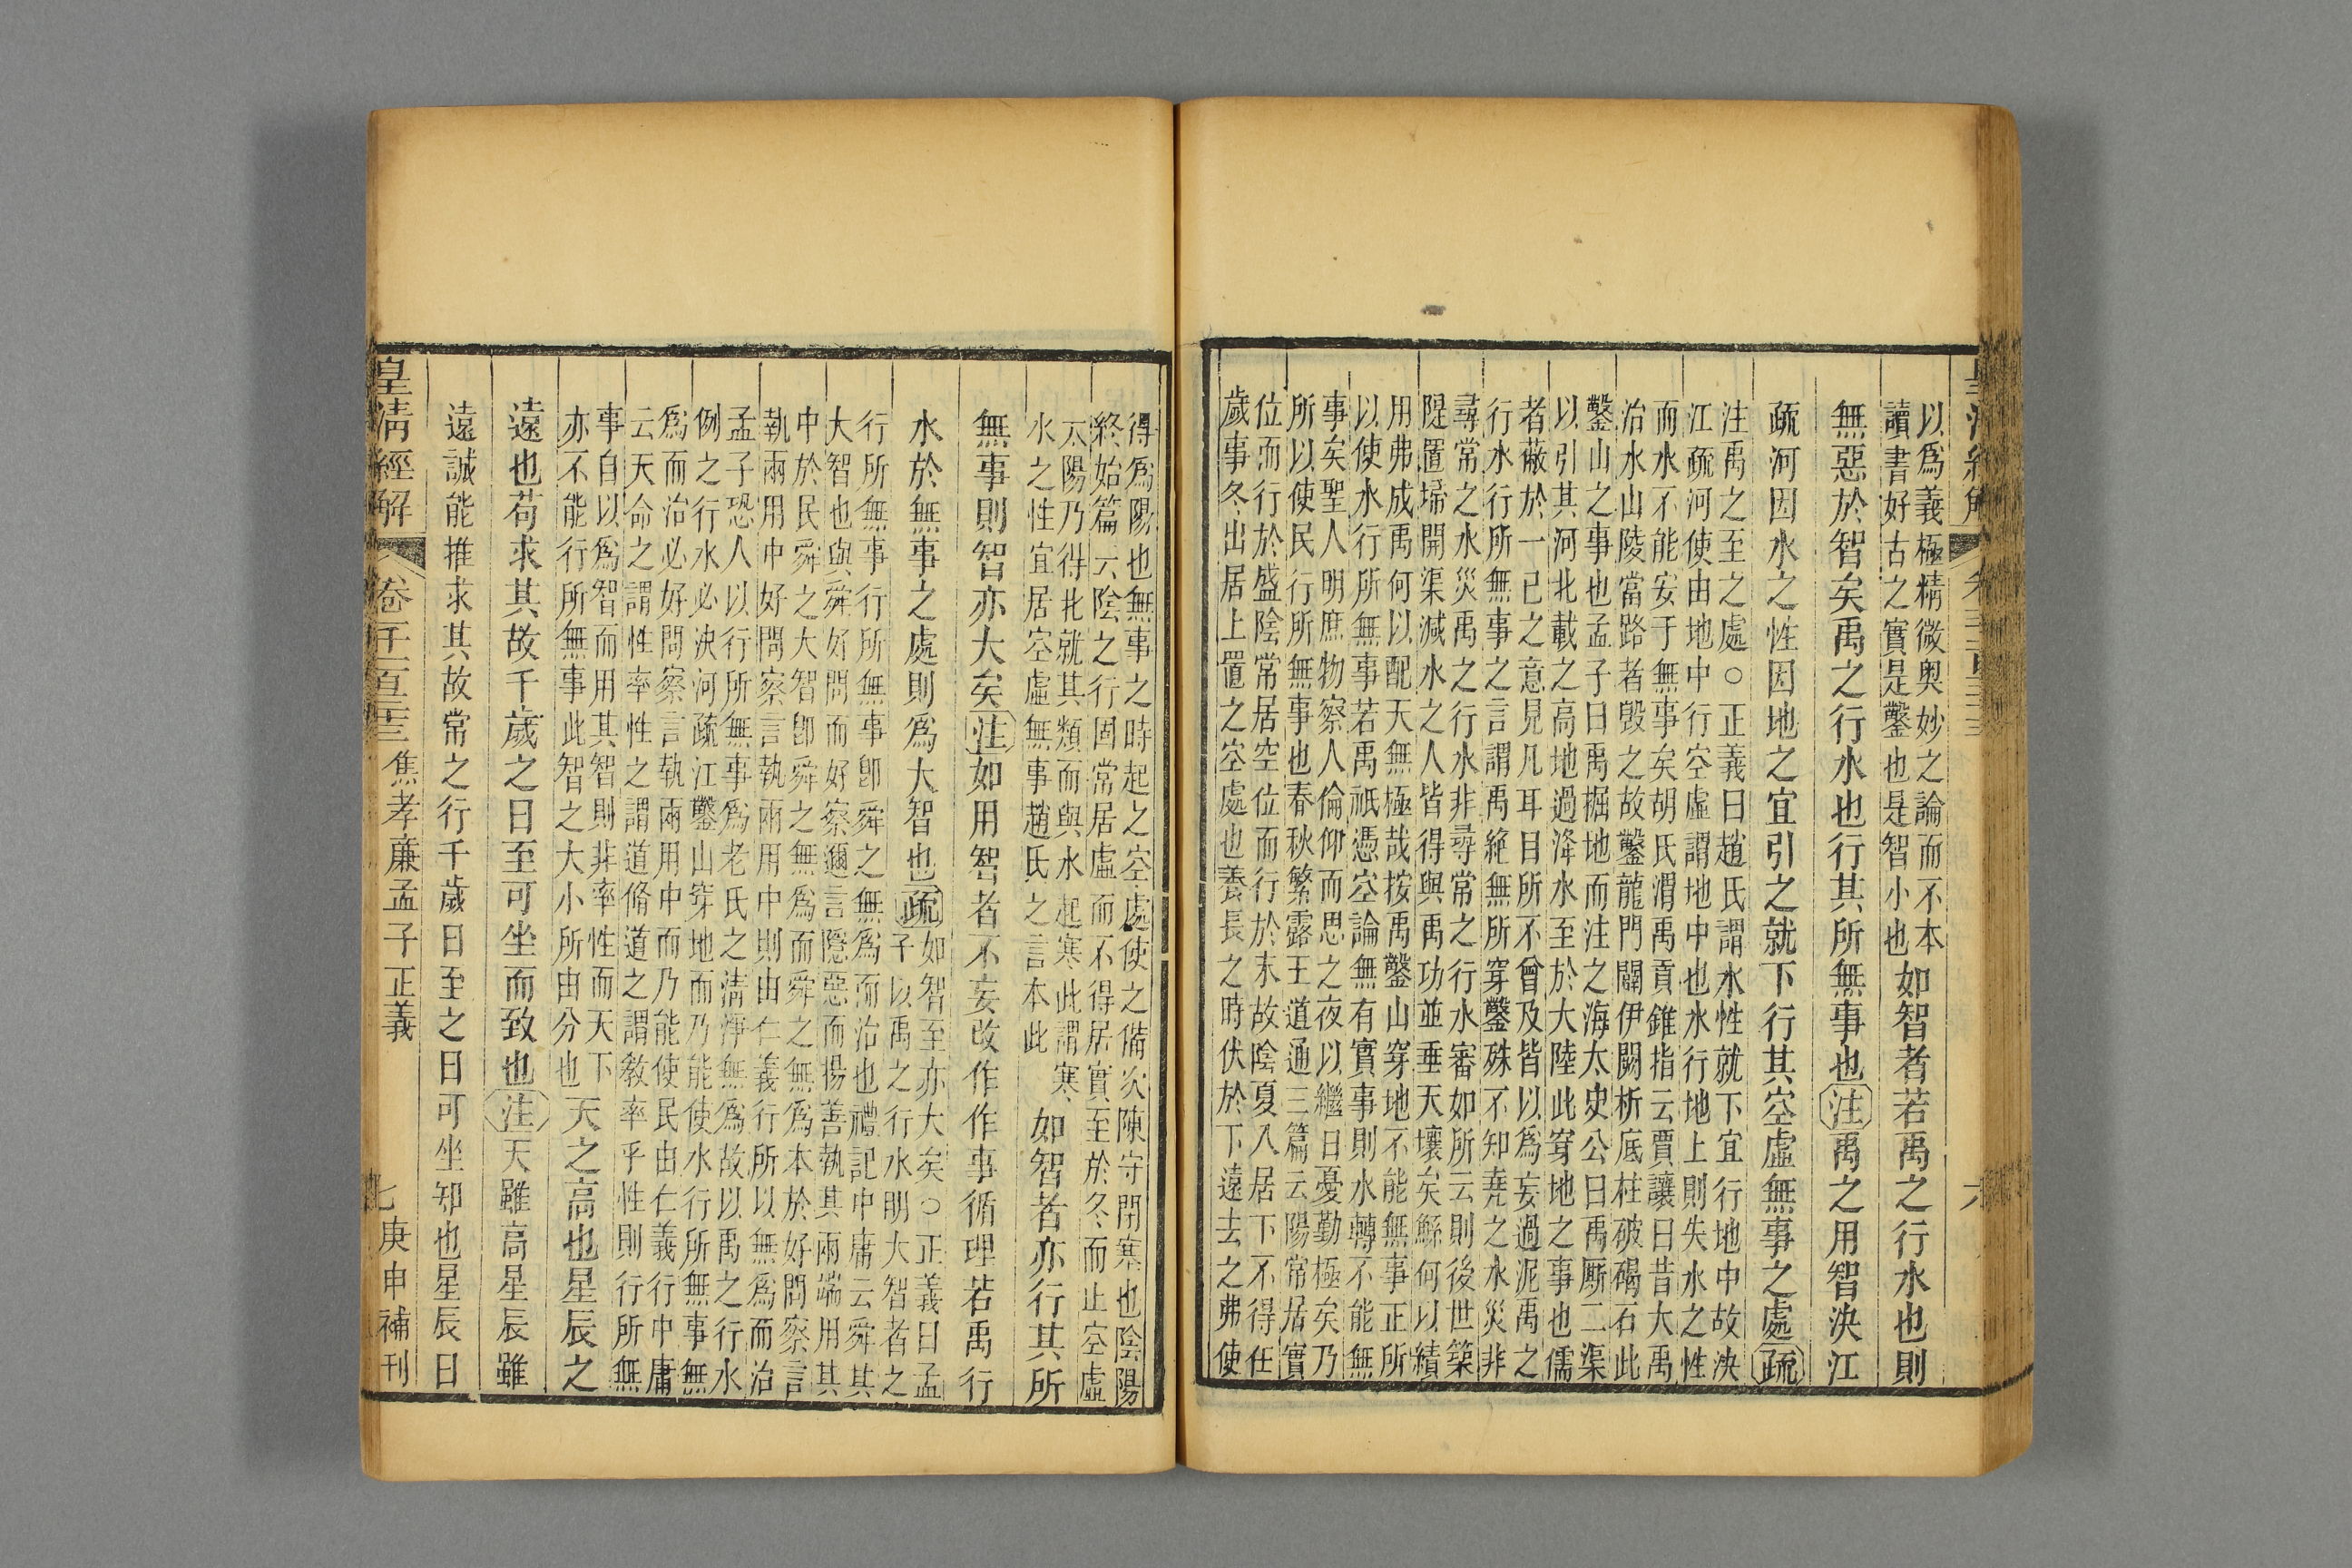 以爲義極精微奧妙之論而不本
讀書好古之實是鑿也是智小也
如智者若禹之行水也則
無惡於智矣禹之行水也行其所無事也注禹之用智決江
疏河因水之性因地之宜引之就下行其空虛無事之處疏
注禹之至之處○正義曰趙氏謂水性就下宜行地中故決
江疏河使由地中行空虛謂地中也水行地上則失水之性
而水不能安于無事矣胡氏渭禹貢錐指云賈讓曰昔大禹
治水山陵當路者毀之故鑿龍門闢伊闕析底柱破碣石此
鑿山之事也孟子曰禹掘地而注之海太史公曰禹厮二渠
以引其河北載之高地過洚水至於大陸此穿地之事也儒
者蔽於一己之意見凡耳目所不曾及皆以爲妄過泥禹之
行水行所無事之言謂禹絶無所穿鑿殊不知堯之水災非
尋常之水災禹之行水非尋常之行水審如所云則後世築
隄置埽開渠減水之人皆得與禹功並垂天壤矣鯀何以績
用弗成禹何以配天無極哉按禹鑿山穿地不能無事正所
以使水行所無事若禹祇憑空論無有實事則水轉不能無
事矣聖人明庶物察人倫仰而思之夜以繼日憂勤極矣乃
所以使民行所無事也春秋繁露王道通三篇云陽常居實
位而行於盛陰常居空位而行於末故陰夏入居下不得任
歲事冬出居上置之空處也養長之時伏於下遠去之弗使
得爲陽也無事之時起之空處使之備次陳守閉塞也陰陽
終始篇云陰之行固常居虛而不得居實至於冬而止空虛
太陽乃得北就其類而與水起寒此謂寒
水之性宜居空虛無事趙氏之言本此
如智者亦行其所
無事則智亦大矣注如用智者不妄改作作事循理若禹行
水於無事之處則爲大智也疏
如智至亦大矣○正義曰孟
子以禹之行水明大智者之
行所無事行所無事卽舜之無爲而治也禮記中庸云舜其
大智也與舜好問而好察邇言隱惡而揚善執其兩端用其
中於民舜之大智卽舜之無爲而舜之無爲本於好問察言
執兩用中好問察言執兩用中則由仁義行所以無爲而治
孟子恐人以行所無事爲老氏之淸淨無爲故以禹之行水
例之行水必決河疏江鑿山穿地而乃能使水行所無事無
爲而治必好問察言執兩用中而乃能使民由仁義行中庸
云天命之謂性率性之謂道脩道之謂敎率乎性則行所無
事自以爲智而用其智則非率性而天下
亦不能行所無事此智之大小所由分也
天之高也星辰之
遠也苟求其故千歲之日至可坐而致也注天雖高星辰雖
遠誠能推求其故常之行千歲日至之日可坐知也星辰日
皇淸經解
卷一千一百三十三
焦孝廉孟子正義
七
庚申補刊